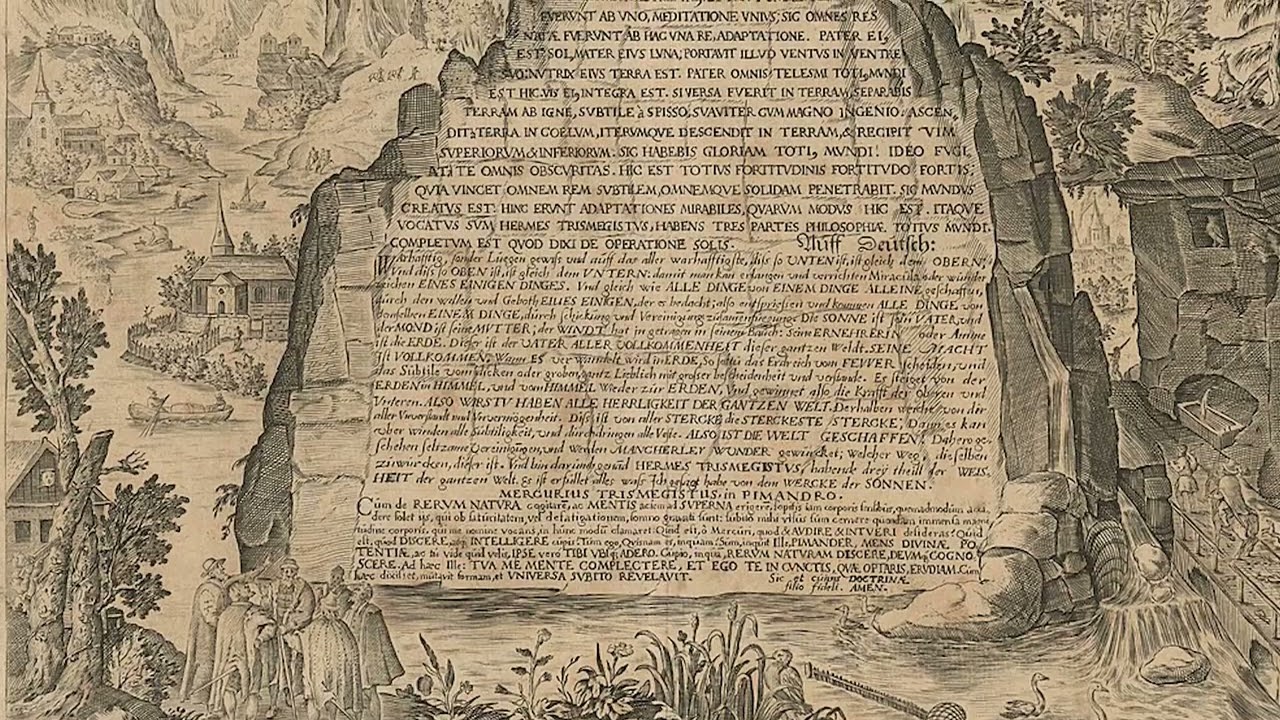 FVERVNT AB VNO, MEDITATIONE VNIVS; SIC OMNES RES
NATÆ FVERVNT AB HAC VNA RE, ADAPTATIONE. PATER EI,
EST SOL, MATER EIVS LVNA; PORTAVIT ILLVD VENTVS IN VENTRE
SVO: NVTRIX EIVS TERRA EST. PATER OMNIS TELESMI TOTI, MVNDI
EST HIC. VIS EI, INTEGRA EST. SI VERSA FVERIT IN TERRAM, SEPARABIS
TERRAM AB IGNE, SVBTILE à SPISSO, SVAVITER CVM MAGNO INGENIO. ASCEN,
DIT à TERRA IN COELVM, ITERVMQVE DESCENDIT IN TERRAM, & RECIPIT VIM
SVPERIORVM & INFERIORVM. SIC HABEBIS GLORIAM TOTI, MVNDI! IDEO FVGI,
AT à TE OMNIS OBSCVRITAS. HIC EST TOTIVS FORTITVDINIS FORTITVDO FORTIS;
QVIA VINCET OMNEM REM SVBTILEM, OMNEMQVE SOLIDAM PENETRABIT. SIC MVNDVS
CREATVS EST. HINC ERVNT ADAPTATIONES MIRABILES, QVARVM MODVS HIC EST. ITAQVE
VOCATVS SVM HERMES TRISMEGISTVS, HABENS TRES PARTES PHILOSOPHIÆ TOTIVS MVNDI.
COMPLETVM EST QVOD DIXI DE OPERATIONE SOLIS. Auff Deutsch:
Warhafftig, sonder Liegen gewiß und auff das aller warhafftigste, diß so VNTEN ist, ist gleich dem OBERN,
Vnd diß so OBEN ist, ist gleich dem VNTERN: damit man kan erlangen und verrichten Miracula oder wunder
zeichen EINES EINIGEN DINGES. Vnd gleich wie ALLE DINGE von EINEM DINGE ALLEINE geschaffen,
durch den willen und Geboth EINES EINIGEN, der es bedacht; also entsprießen und kommen ALLE DINGE von
demselben EINEM DINGE, durch schickung und Vereinigung Die SONNE ist sein VATER, und
der MOND ist seine MVTTER; der WINDT hat in getragen in seinem Bauch: Seine ERNEHRERIN oder Amme
ist die ERDE. Dieser ist der VATER ALLER VOLLKOMMENHEIT dieser gantzen Weldt. SEINE MACHT
Ist VOLLKOMMEN; Wann ES verwandelt wird in ERDE, So soltu das Erdreich vom FEWER scheiden, und
das Subtile vom dicken oder groben, gantz Lieblich mit großer bescheidenheit und verstande. Es steiget von der
ERDEN in HIMMEL, und vom HIMMEL Wieder zur ERDEN, Vnd gewinnet also die Krafft der Obern und
Vnteren. ALSO WIRSTV HABEN ALLE HERRLIGKEIT DER GANTZEN WELT. Derhalben weiche von dir
aller Vnverstandt und Vnvermögenheit. Diß ist von aller STERCKE die STERCKESTE STERCKE; Dann es kan
uber winden alle Subtiligkeit, und durchdringen alle Veste. ALSO IST DIE WELT GESCHAFFEN! Dahero ge,
schehen seltzame Vereinigungen, und werden MANCHERLEY WUNDER gewürcket; Welcher Weg, dieselben
zuwürcken, dieser ist. Vnd bin darumb genand HERMES TRISMEGISTVS, habende drey theill der WEIS,
HEIT der gantzen Welt. Es ist erfüllet alles waß Ich gesagt habe von dem WERCKE der SONNEN.
MERCURIUS TRISMEGISTUS, in PIMANDRO.
Cum de RERVM NATURA cogitarem, ac MENTIS aciem ad SUPERNA erigerē, sopitis iam corporis sensibus, quemadmodum acci,
dere solet iis, qui ob saturitatem, vel defatigationem, somno gravati sunt: subito mihi visus sum cernere quendam immensa magni
tudine corporis, qui me nomine vocans, in hunc modum clamaret: Quid est, o Mercuri, quod & AUDIRE & INTUERI desideras? Quid
est, quod DISCERE, atque INTELLIGERE cupis? Tum ego, Quisnam es, inquam? Sum, inquit ille, PIMANDER, MENS DIVINÆ PO,
TENTIÆ, ac tu vide quid velis, IPSE vero TIBI VBIQ; ADERO. Cupio, inquā, RERUM NATURAM DISCERE, DEUMQ, COGNO,
SCERE. Ad hæc ille: TUA ME MENTE COMPLECTERE, ET EGO TE IN CUNCTIS, QUÆ OPTARIS, ERUDIAM. Cum
hæc dixisset, mutavit formam, et UNIVERSA SUBITO REVELAVIT.
Sic et DOCTRINÆ
filio fideli. AMEN.